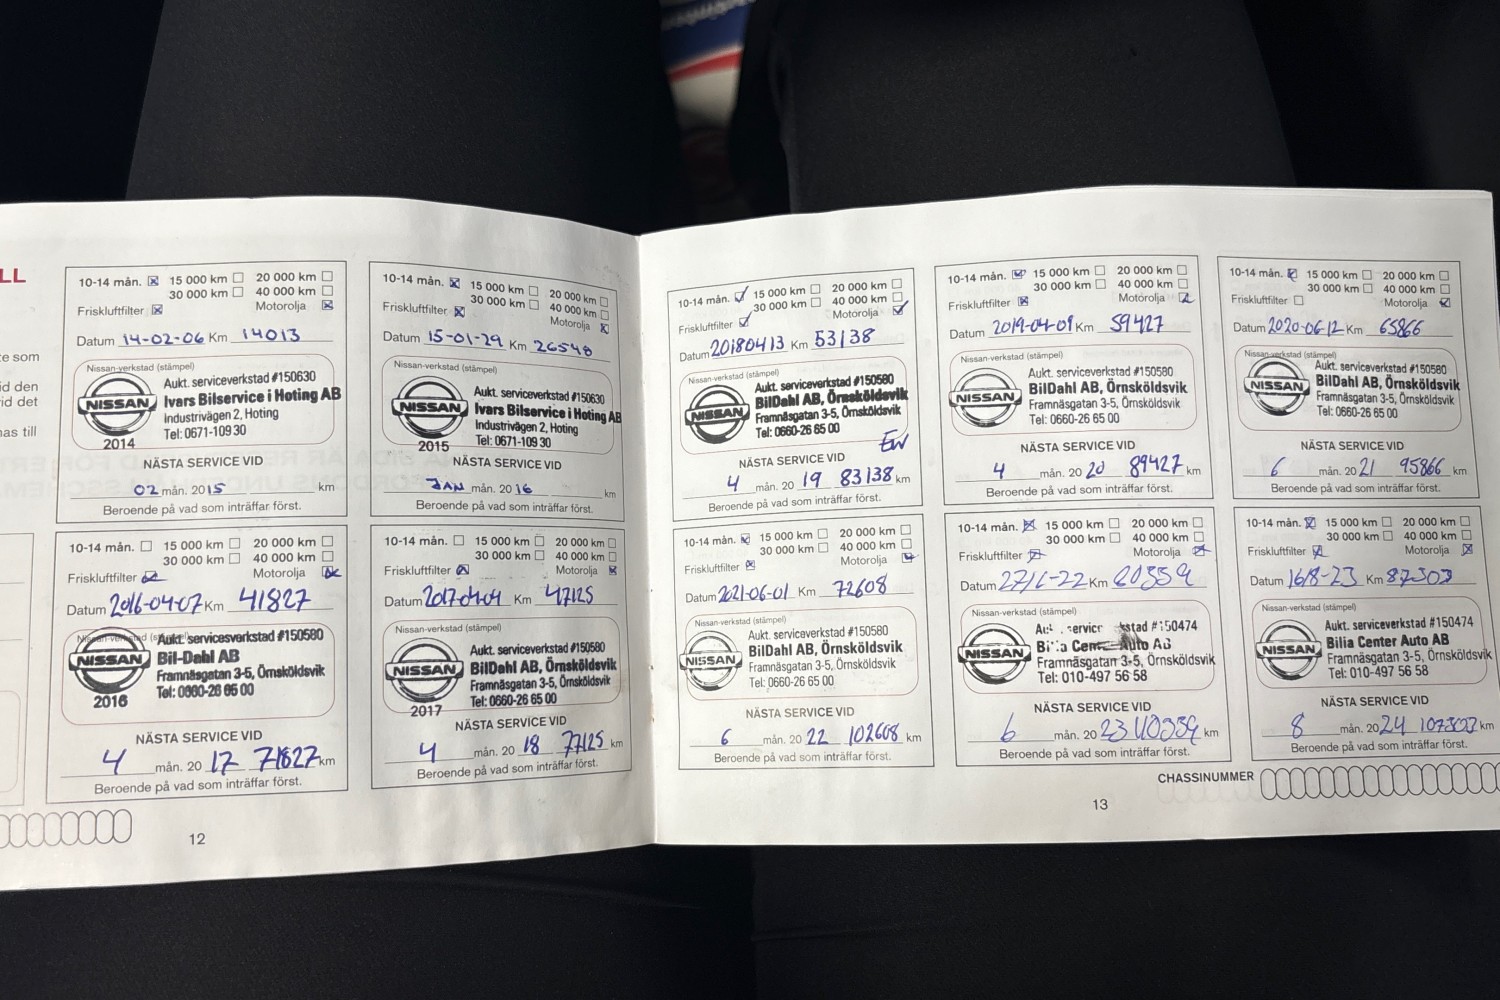 LL
te som
id den
rid det
nas till
10-14 mån. 15 000 km 20 000 km
30 000 km
Friskluftfilter Motorolja
Datum 14-02-06 Km 14013
Nissan-verkstad (stämpel)
NISSAN
2014
Aukt. serviceverkstad #150630
Ivars Bilservice i Hoting AB
Industrivägen 2, Hoting
Tel: 0671-109 30
NÄSTA SERVICE VID
02 mån. 2015 km
Beroende på vad som inträffar först.
10-14 mån. 15 000 km 20 000 km
30 000 km 40 000 km
Friskluftfilter Motorolja
Datum 15-01-29 Km 26548
Nissan-verkstad (stämpel)
NISSAN
2015
Aukt. serviceverkstad #150630
Ivars Bilservice i Hoting AB
Industrivägen 2, Hoting
Tel: 0671-109 30
NÄSTA SERVICE VID
JAN mån. 2016 km
Beroende på vad som inträffar först.
10-14 mån. 15 000 km 20 000 km
30 000 km 40 000 km
Friskluftfilter Motorolja
Datum 2016-04-07 Km 41827
NISSAN
2016
Aukt. servicesverkstad #150580
Bil-Dahl AB
Framnäsgatan 3-5, Örnsköldsvik
Tel: 0660-26 65 00
NÄSTA SERVICE VID
4 mån. 2017 71827 km
Beroende på vad som inträffar först.
10-14 mån. 15 000 km 20 000 km
30 000 km 40 000 km
Friskluftfilter Motorolja
Datum 2017-04-04 Km 47125
Nissan-verkstad (stämpel)
NISSAN
2017
Aukt. serviceverkstad #150580
BilDahl AB, Örnsköldsvik
Framnäsgatan 3-5, Örnsköldsvik
Tel: 0660-26 65 00
NÄSTA SERVICE VID
4 mån. 2018 77125 km
Beroende på vad som inträffar först.
12
10-14 mån. 15 000 km 20 000 km
30 000 km 40 000 km
Friskluftfilter Motorolja
Datum 20180413 Km 53138
Nissan-verkstad (stämpel)
NISSAN
Aukt. serviceverkstad #150580
BilDahl AB, Örnsköldsvik
Framnäsgatan 3-5, Örnsköldsvik
Tel: 0660-26 65 00
NÄSTA SERVICE VID
4 mån. 2019 83138 km
Beroende på vad som inträffar först.
10-14 mån. 15 000 km 20 000 km
30 000 km 40 000 km
Friskluftfilter Motorolja
Datum 2019-04-09 Km 59427
Nissan-verkstad (stämpel)
NISSAN
Aukt. serviceverkstad #150580
BilDahl AB, Örnsköldsvik
Framnäsgatan 3-5, Örnsköldsvik
Tel: 0660-26 65 00
NÄSTA SERVICE VID
4 mån. 2020 89427 km
Beroende på vad som inträffar först.
10-14 mån. 15 000 km 20 000 km
30 000 km 40 000 km
Friskluftfilter Motorolja
Datum 2020-06-12 Km 65866
Nissan-verkstad (stämpel)
NISSAN
Aukt. serviceverkstad #150580
BilDahl AB, Örnsköldsvik
Framnäsgatan 3-5, Örnsköldsvik
Tel: 0660-26 65 00
NÄSTA SERVICE VID
6 mån. 2021 95866 km
Beroende på vad som inträffar först.
10-14 mån. 15 000 km 20 000 km
30 000 km 40 000 km
Friskluftfilter Motorolja
Datum 2021-06-01 Km 72608
Nissan-verkstad (stämpel)
NISSAN
Aukt. serviceverkstad #150580
BilDahl AB, Örnsköldsvik
Framnäsgatan 3-5, Örnsköldsvik
Tel: 0660-26 65 00
NÄSTA SERVICE VID
6 mån. 2022 102608 km
Beroende på vad som inträffar först.
10-14 mån. 15 000 km 20 000 km
30 000 km 40 000 km
Friskluftfilter Motorolja
Datum Km
Nissan-verkstad (stämpel)
NISSAN
#150474
Auto AB
Framnäsgatan 3-5, Örnsköldsvik
Tel: 010-497 56 58
NÄSTA SERVICE VID
6 mån. 2023 110359 km
Beroende på vad som inträffar först.
10-14 mån. 15 000 km 20 000 km
30 000 km 40 000 km
Friskluftfilter Motorolja
Datum 16/8-23 Km 87303
Nissan-verkstad (stämpel)
NISSAN
Aukt. serviceverkstad #150474
Bilia Center Auto AB
Framnäsgatan 3-5, Örnsköldsvik
Tel: 010-497 56 58
NÄSTA SERVICE VID
8 mån. 2024 107303 km
Beroende på vad som inträffar först.
CHASSINUMMER
13